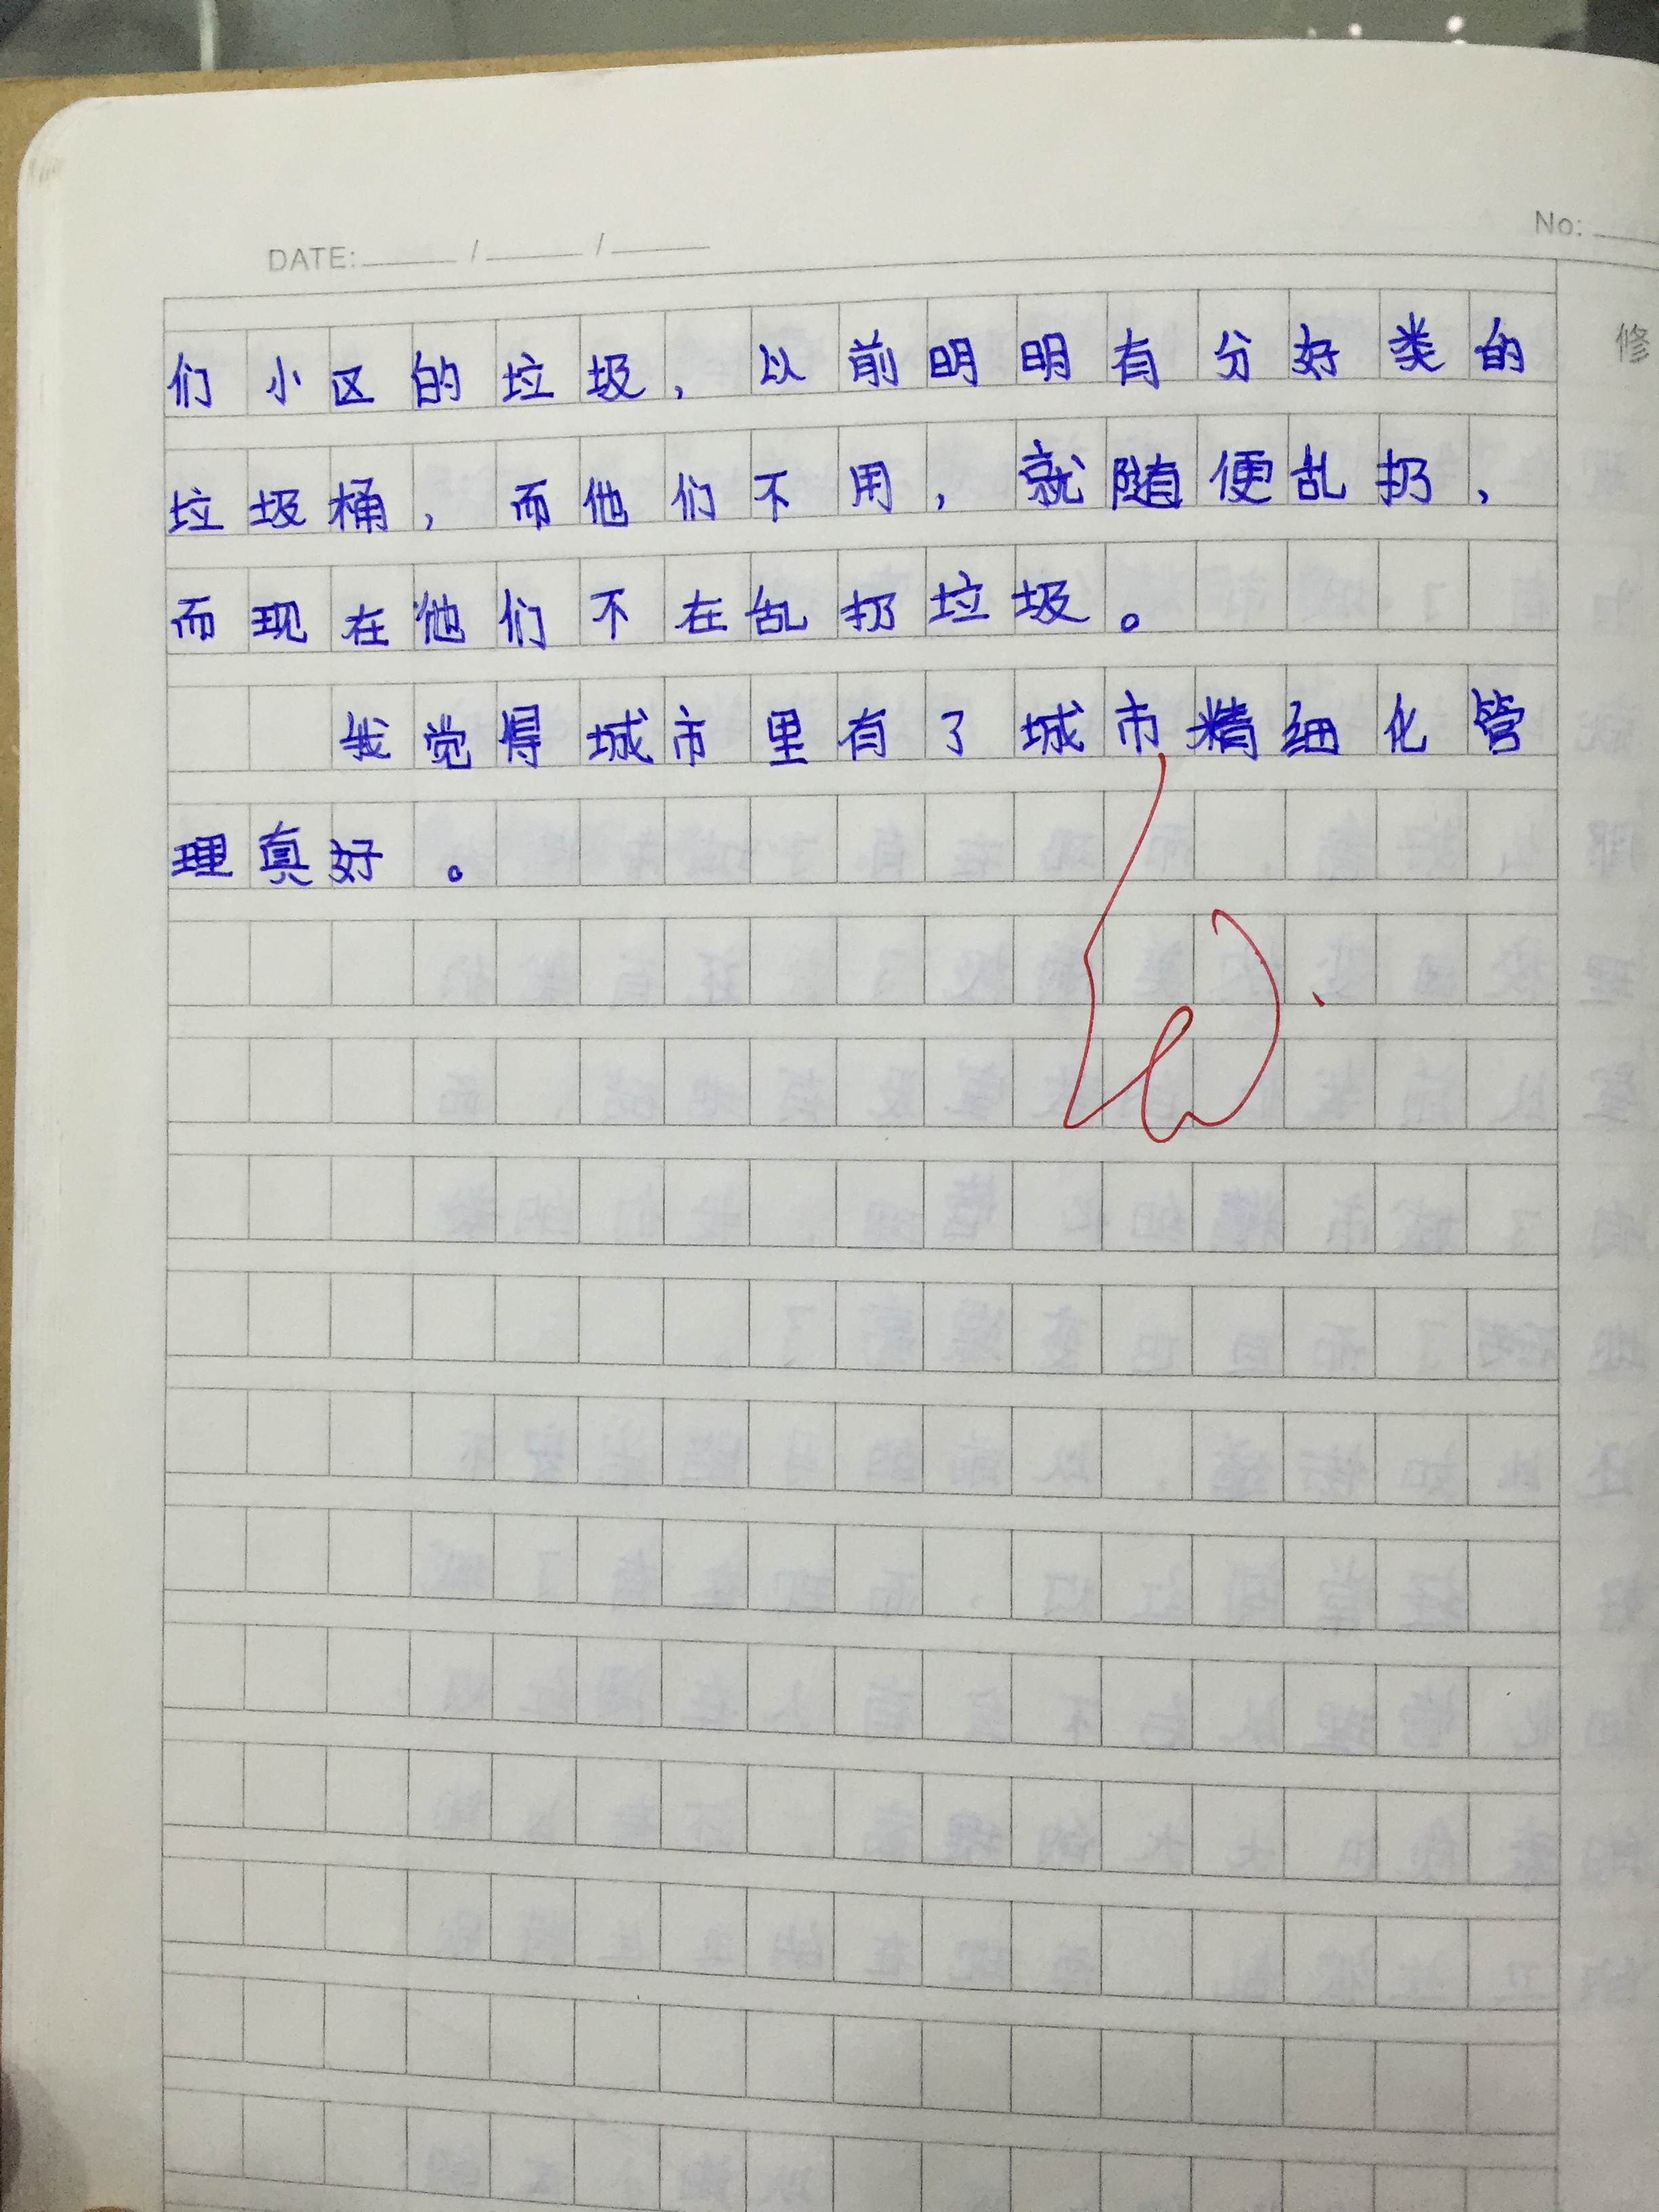 DATE: / /
No:
修
们小区的垃圾，以前明明有分好类的
垃圾桶，而他们不用，就随便乱扔，
而现在他们不在乱扔垃圾。
我觉得城市里有了城市精细化管
理真好。